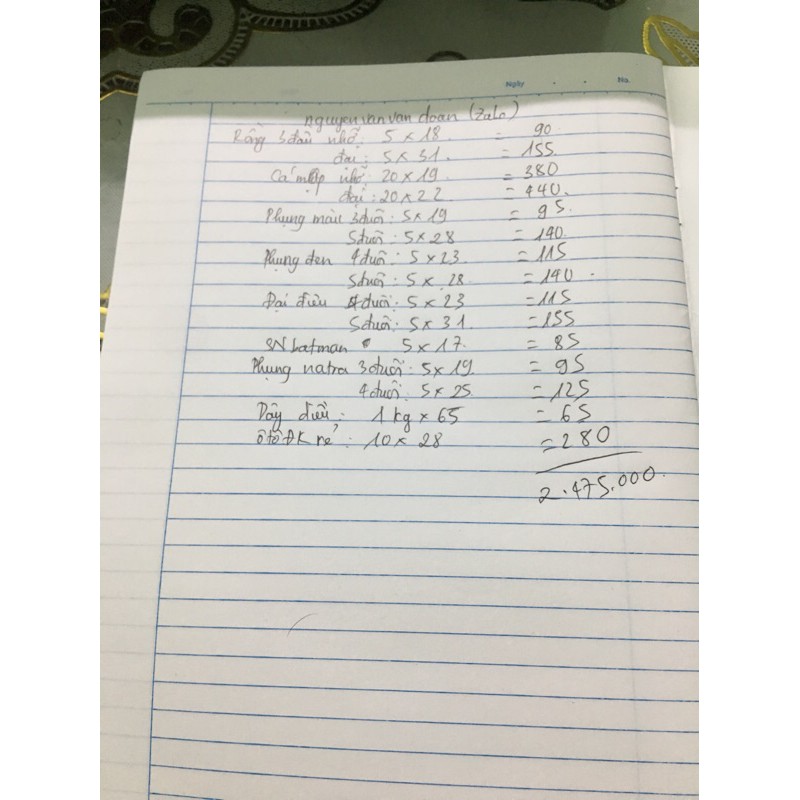 Ngày . . No.
Nguyen van van doan (Zalo)
Rồng 3 đầu nhỡ: 5 x 18 = 90
đại: 5 x 31. = 155
Cá mập nhỡ: 20 x 19 = 380
đại: 20 x 22 = 440.
Phụng màu 3 đuôi: 5 x 19 = 95.
5 đuôi: 5 x 28 = 140
Phụng đen 4 đuôi: 5 x 23. = 115
5 đuôi: 5 x 28 = 140.
Đại điều 4 đuôi: 5 x 23 = 115
5 đuôi: 5 x 31. = 155
batman 5 x 17. = 85
Phụng natra 3 đuôi: 5 x 19. = 95
4 đuôi: 5 x 25 = 125
Dây diều: 1 kg x 65 = 65
ô tô ĐK rẻ: 10 x 28 = 280
2.475.000